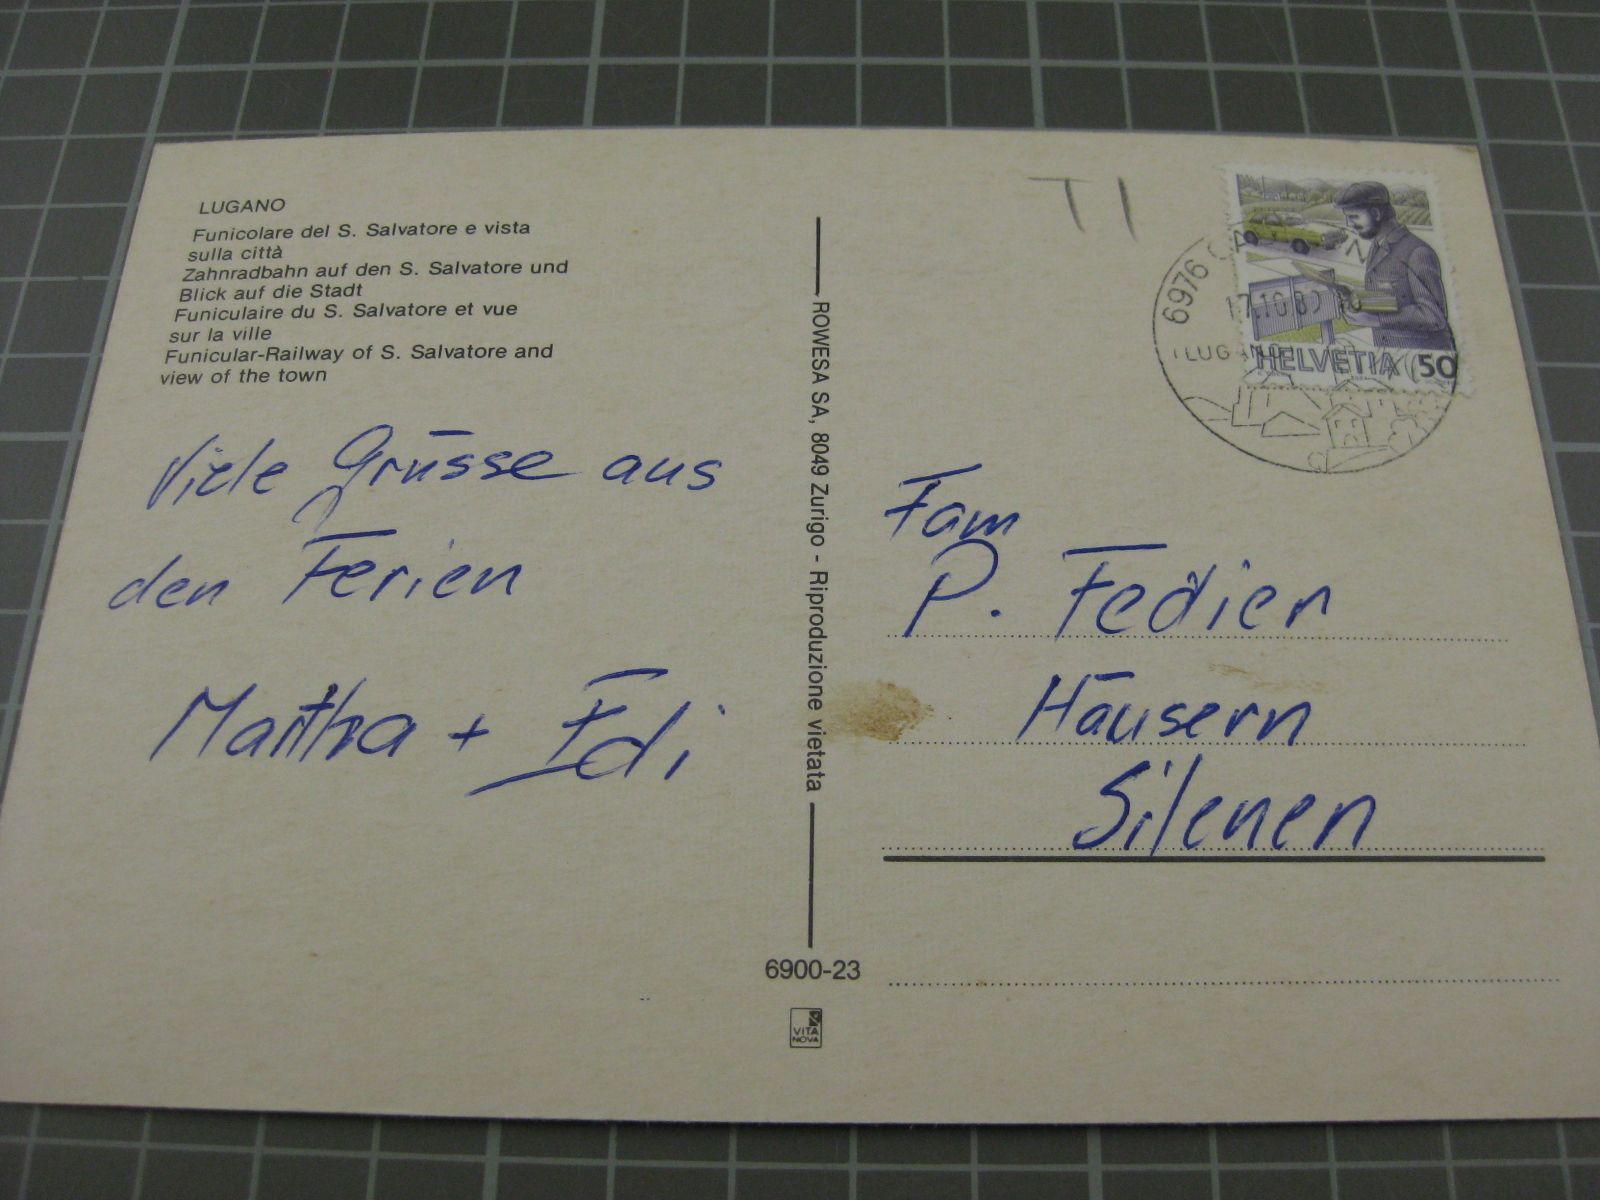 LUGANO
Funicolare del S. Salvatore e vista
sulla città
Zahnradbahn auf den S. Salvatore und
Blick auf die Stadt
Funiculaire du S. Salvatore et vue
sur la ville
Funicular-Railway of S. Salvatore and
view of the town
Viele Grüsse aus
den Ferien
Martha + Edi
ROWESA SA, 8049 Zurigo - Riproduzione vietata
6900-23
VITA
NOVA
TI
6976
17.10.89
LUGANO
HELVETIA 50
Fam
P. Fedier
Häusern
Silenen